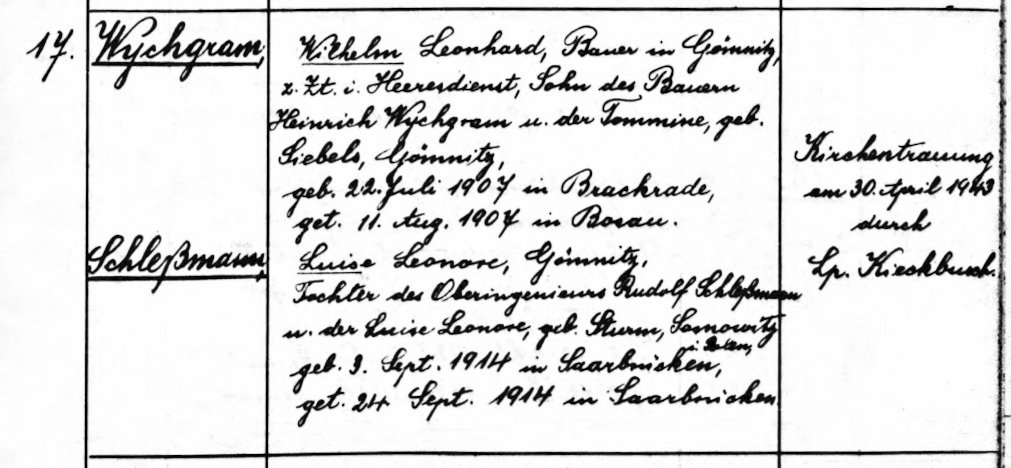 17. Wychgram,
Wilhelm Leonhard, Bauer in Gömnitz,
z. Zt. i. Heeresdienst, Sohn des Bauern
Heinrich Wychgram u. der Tommine, geb.
Siebels, Gömnitz,
geb. 22. Juli 1907 in Brackrade,
get. 11. Aug. 1907 in Bosau.
Schleßmann,
Luise Leonore, Gömnitz,
Tochter des Oberingenieurs Rudolf Schleßmann
u. der Luise Leonore, geb. Sturm, Somowitz
i. Polen,
geb. 3. Sept. 1914 in Saarbrücken,
get. 24 Sept. 1914 in Saarbrücken
Kirchentrauung
am 30. April 1943
durch
Lp. Kieckbusch.